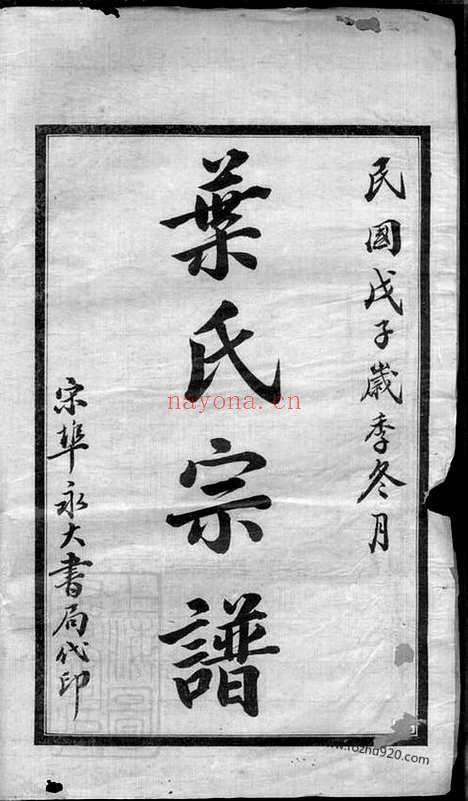 民國戊子歲季冬月
葉氏宗譜
宋埠永大書局代印
nayona.cn
www.rozhd920.com